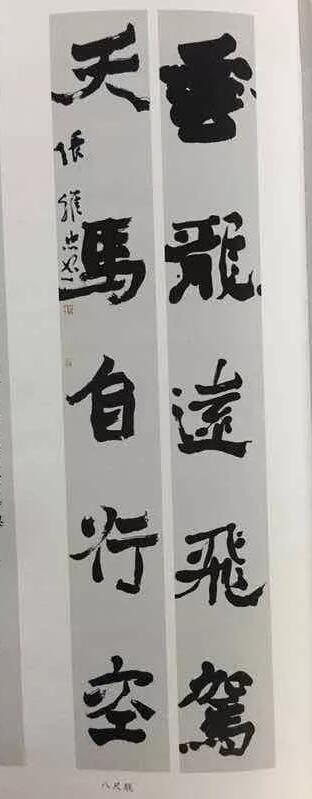 雲龍遠飛駕
天馬自行空
張維忠書
八尺联